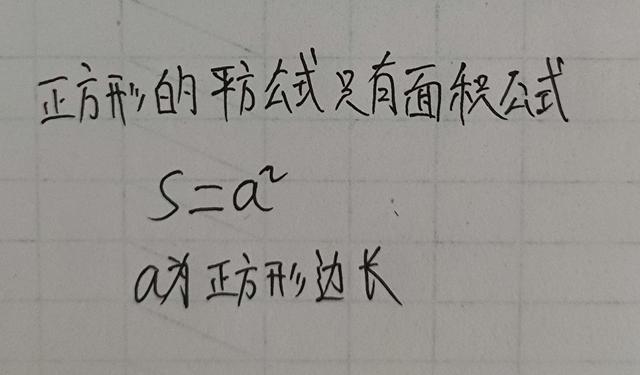 正方形的平方公式只有面积公式
S=a²
a为正方形边长